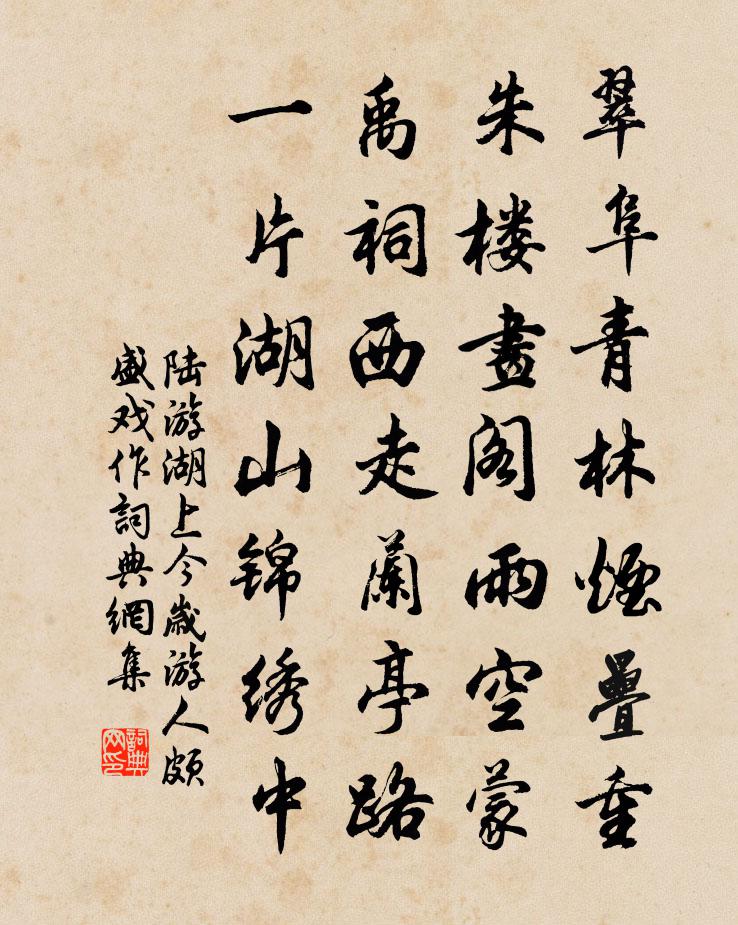 翠阜青林煙疊重
朱楼畫阁雨空蒙
禹祠西走蘭亭路
一片湖山锦绣中
陆游湖上今歲游人頗
盛戏作詞典網集
詞典
网印